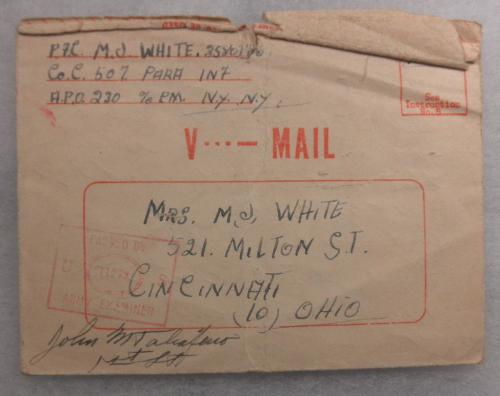 PFC. M.J. WHITE.
Co. C. 507 PARA INF
A.P.O. 230 % PM. N.Y. N.Y.
See
Instruction
No. 5
V···— MAIL
MRS. M.J. WHITE
521. MILTON ST.
CINCINNATI
(10) OHIO
PASSED BY
U S
ARMY EXAMINER
John
1st Lt